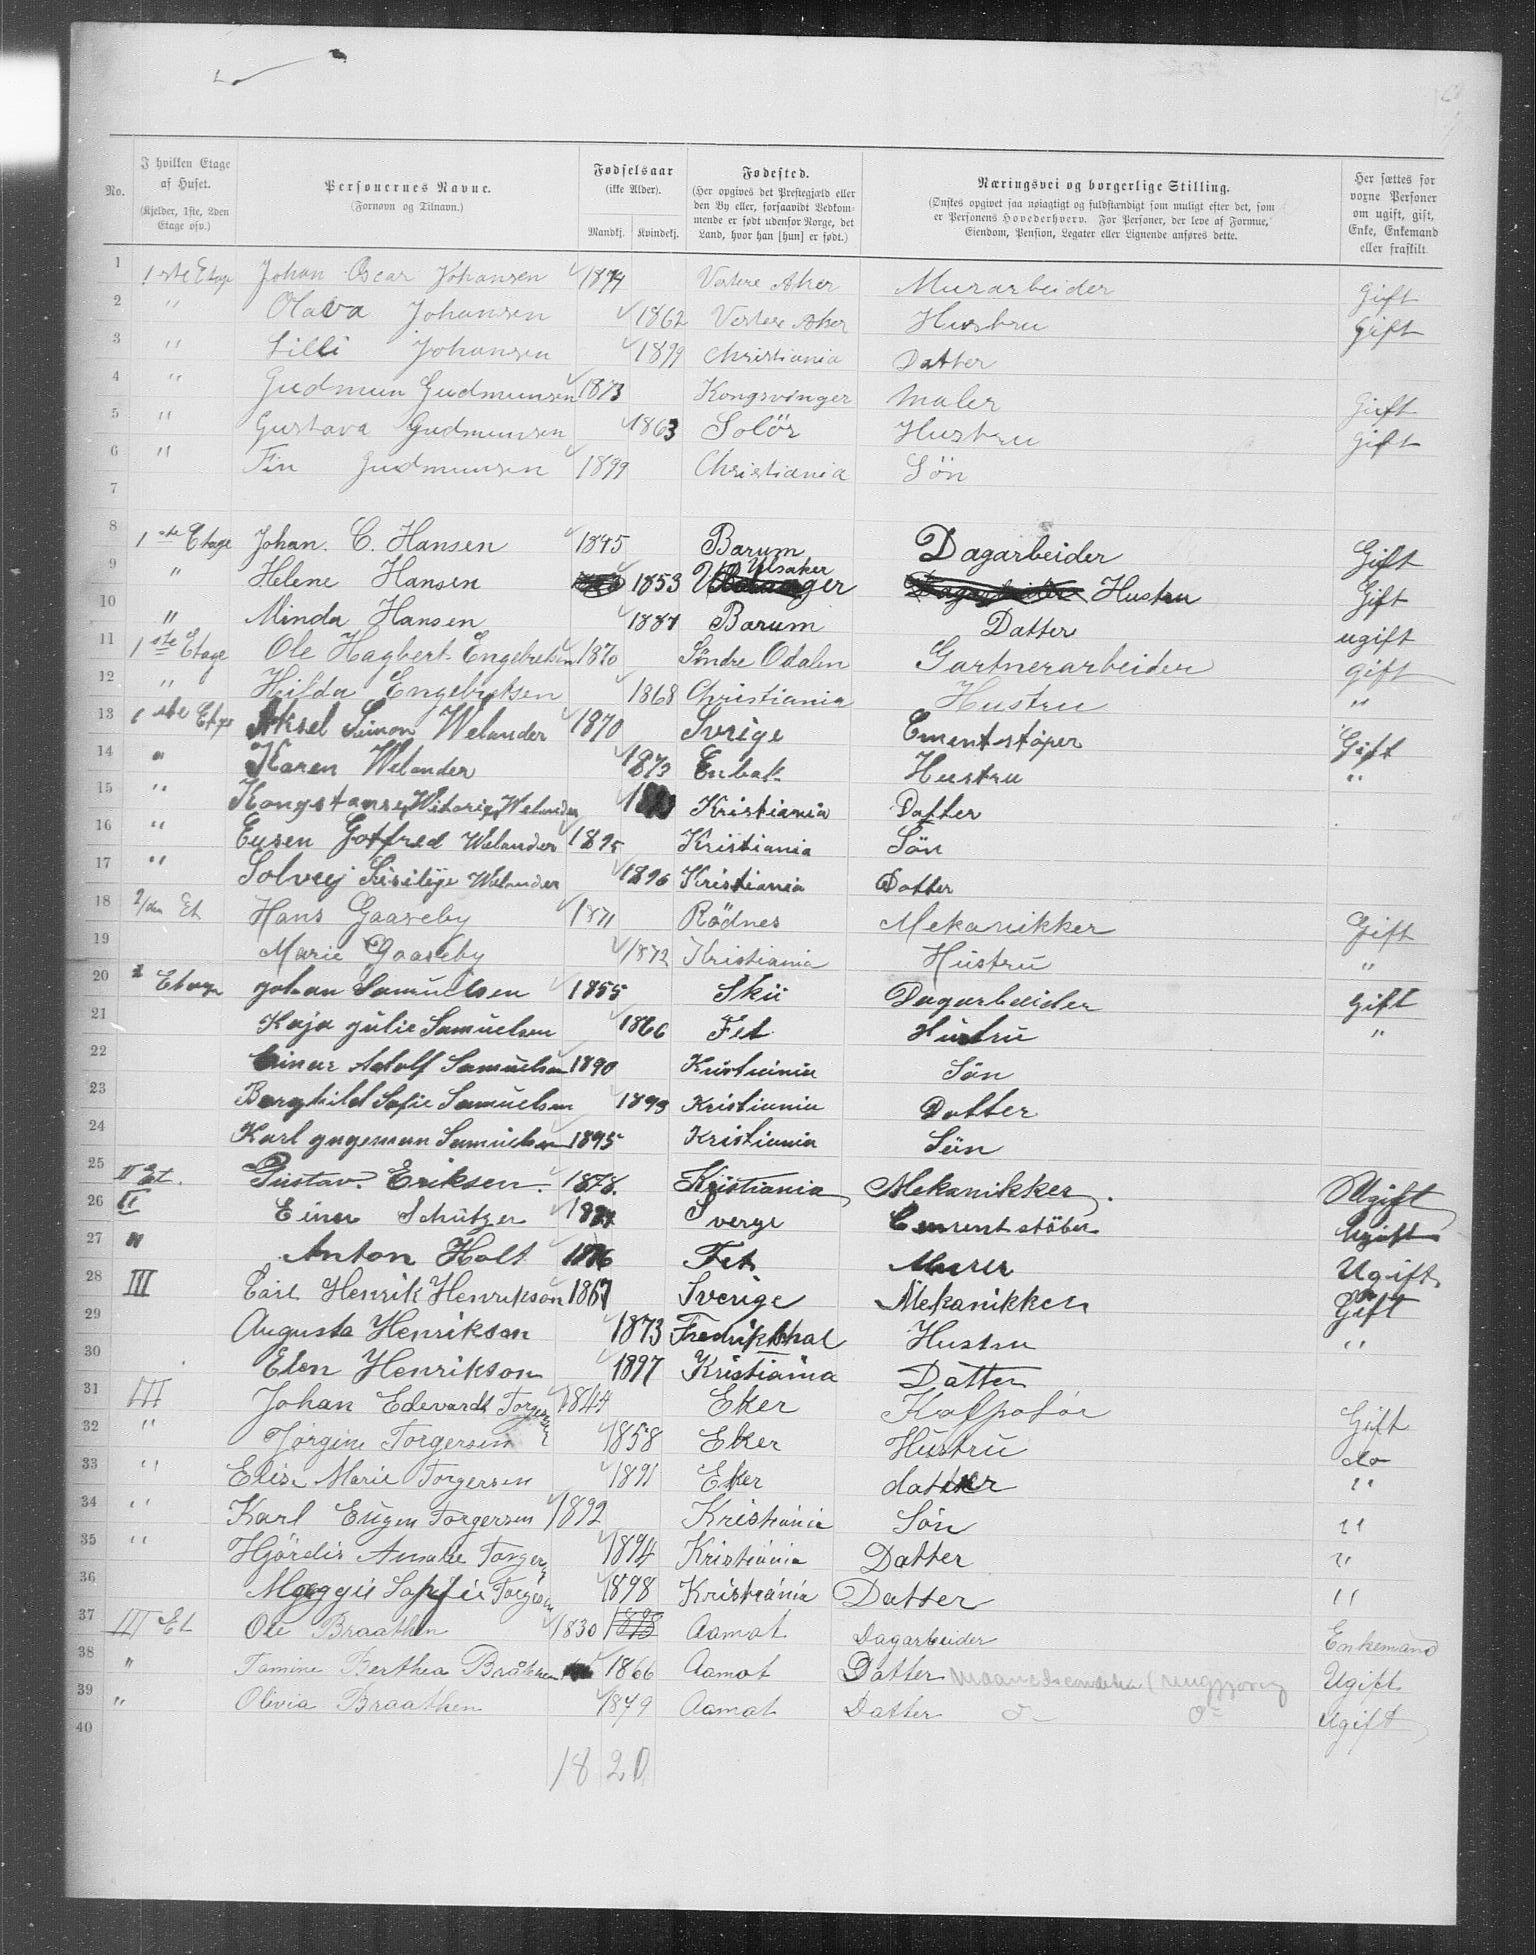 No.
I hvilken Etage af Huset. (Kjelder, 1ste, 2den Etage osv.)
Personernes Navne. (Fornavn og Tilnavn.)
Fødselsaar (ikke Alder). Mandkj. Kvindekj.
Fødested. (Her opgives det Prestegjæld eller den By eller, forsaavidt Vedkommende er født udenfor Norge, det Land, hvor han [hun] er født.)
Næringsvei og borgerlige Stilling. (Ønskes opgivet saa nøiagtigt og fuldstændigt som muligt efter det, som er Personens Hovederhverv. For Personer, der leve af Formue, Eiendom, Pension, Legater eller Lignende anføres dette.
Her sættes for voxne Personer om ugift, gift, Enke, Enkemand eller fraskilt
1 1ste Etage Johan Oscar Johansen 1874 Vestere Aker Murarbeider Gift
2 " Olava Johansen 1862 Vestere Aker Hustru Gift
3 " Lilli Johansen 1899 Christiania Datter
4 " Gudmun Gudmunsen 1873 Kongsvinger Maler Gift
5 " Gustava Gudmunsen 1863 Solör Hustru Gift
6 " Fin Gudmunsen 1899 Christiania Sön
7
8 1ste Etage Johan. C. Hansen 1845 Barum Dagarbeider Gift
9 " Helene Hansen 1853 Ulsaker Hustru Gift
10 " Minda Hansen 1881 Barum Datter ugift
11 1ste Etage Ole Hagbert Engebretsen 1870 Söndre Odalen Gartnerarbeider gift
12 " Hilda Engebretsen 1868 Christiania Hustru "
13 1ste Etge Aksel Simon Welander 1870 Sverige Cmentstöper Gift
14 " Karen Welander 1873 Enbak Hustru "
15 " Kongstanse Witoria Welander Kristiania Datter
16 " Eugen Gotfred Welander 1895 Kristiania Sön
17 " Solvej Sisilije Welander 1896 Kristiania Datter
18 2/den Et Hans Gaaseby 1871 Rödnes Mekanikker Gift
19 Marie Gaaseby 1872 Kristiania Hustru "
20 2 Etage Johan Samuelsen 1855 Skii Dagarbeider Gift
21 Kaja Julie Samuelsen 1866 Fet Hustru "
22 Einar Adolf Samuelsen 1890 Kristiania Sön
23 Borghild Sofie Samuelsen 1893 Kristiania Datter
24 Karl Ingeman Samuelsen 1895 Kristiania Sön
25 II Et. Gustav. Eriksen. 1878. Kristiania Mekanikker. Ugift
26 II Einar Schützer Sverge Cementstöber Ugift
27 " Anton Holt 1876 Fet Murer Ugift
28 III Carl Henrik Henrikson 1867 Sverige Mekanikker Gift
29 Augusta Henrikson 1873 Fredrikshal Hustru "
30 Elen Henrikson 1897 Kristiania Datter
31 III Johan Edevardt Torgersen 1844 Eker Kolportör Gift
32 " Jörgine Torgersen 1858 Eker Hustru do
33 " Elise Marie Torgersen 1891 Eker datter "
34 " Karl Eugen Torgersen 1892 Kristiania Sön "
35 " Hjördis Amalie Torgers 1894 Kristiania Datter "
36 Maggie Sofie Torgersen 1898 Kristiania Datter "
37 III Et Ole Braathen 1830 1898 Aamot Dagarbeider Enkemand
38 " Tamine Berthea Bråthen 1866 Aamot Datter Ugift
39 " Olivia Braathen 1879 Aamot Datter Ugift
40
18 20